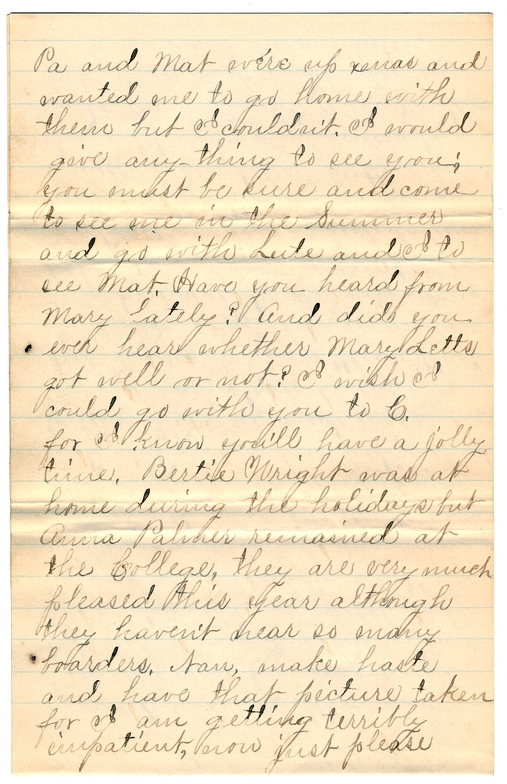 Pa and Mat were up xmas and
wanted me to go home with
them but I couldn't. I would
give any-thing to see you;
you must be sure and come
to see me in the Summer
and go with Lute and I to
see Mat. Have you heard from
Mary lately? And did you
ever hear whether Mary Letts
got well or not? I wish I
could go with you to C.
for I know you'll have a jolly
time. Bertie Wright was at
home during the holidays but
Anna Palmer remained at
the College, they are very much
pleased this year although
they haven't near so many
boarders. Nan, make haste
and have that picture taken
for I am getting terribly
impatient, now just please